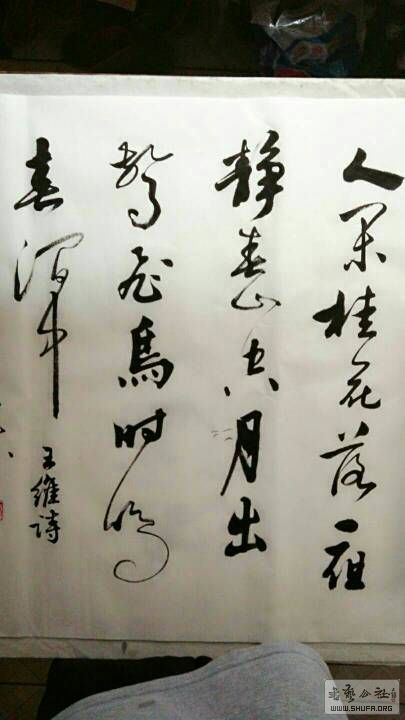 人闲桂花落夜
静春山空月出
驚鳥时鸣
春涧中
王維詩
书艺公社
WWW.SHUFA.ORG